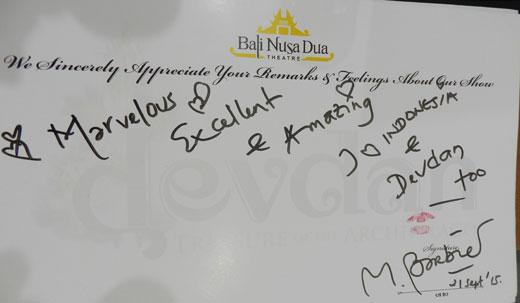 Bali Nusa Dua
THEATRE
We Sincerely Appreciate Your Remarks & Feelings About Our Show
Marvelous
Excellent
& Amazing
I INDONESIA
&
Devdan
too
devdan
TREASURE OF THE ARCHIPELAGO
Signature
M. Barbie
21 Sept '15.